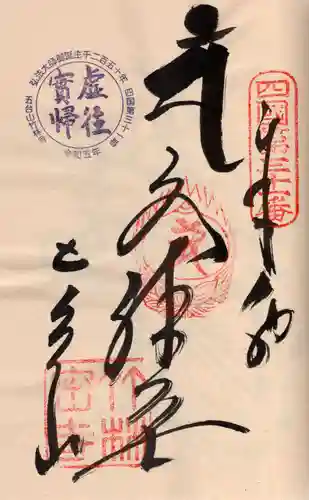 四国第三十一番
奉納
文殊
五台山
弘法大師御誕生千二百五十年
四国第三十一番
五台山竹林寺
令和五年
虚往
實帰
竹林
密寺